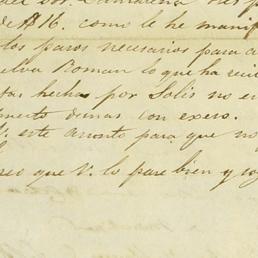 de $16. como le he mani
los pasos necesarios para a
Roman lo que ha reci
tas hechas por Solis no en
puesto demas con exeso.
V. este asonto para que no
reo que V. lo pase bien y